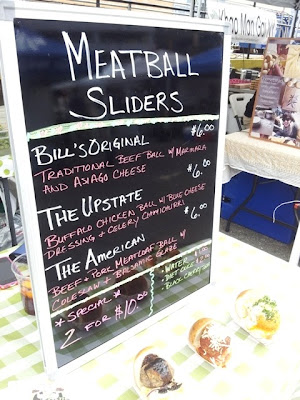 MEATBALL
SLIDERS
BILL'S ORIGINAL $6.00
TRADITIONAL BEEF BALL W/ MARINARA
AND ASIAGO CHEESE
THE UPSTATE $6.00
BUFFALO CHICKEN BALL W/ BLUE CHEESE
DRESSING + CELERY
THE AMERICAN
BEEF + PORK MEATLOAF BALL W/
COLESLAW + BALSAMIC
* SPECIAL *
2 FOR $10.00
WATER
DIET COKE
BLACK CHERRY